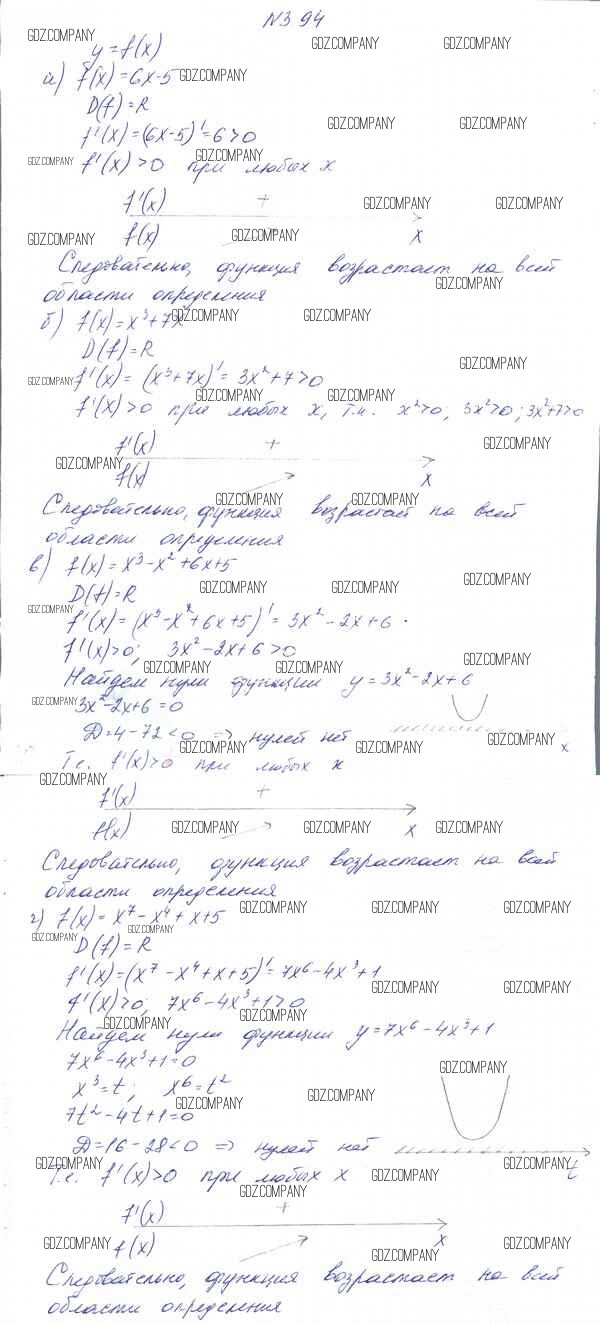 N394
GDZ.COMPANY
y = f(x)
GDZ.COMPANY GDZ.COMPANY
а) f(x) = 6x-5
GDZ.COMPANY
D(f) = R
f'(x) = (6x-5)' = 6>0
GDZ.COMPANY GDZ.COMPANY
GDZ.COMPANY f'(x) >0 при любых x
GDZ.COMPANY
f'(x) +
GDZ.COMPANY GDZ.COMPANY
GDZ.COMPANY f(x) GDZ.COMPANY x
Следовательно, функция возрастает на всей
GDZ.COMPANY
области определения
б) f(x) = x³+7x
GDZ.COMPANY GDZ.COMPANY
D(f) = R
GDZ.COMPANY
GDZ.COMPANY f'(x) = (x³+7x)' = 3x²+7>0
GDZ.COMPANY GDZ.COMPANY
f'(x) >0 при любых x, т.к. x²>0, 3x²>0; 3x²+7>0
f'(x) +
GDZ.COMPANY
GDZ.COMPANY
f(x) x
GDZ.COMPANY GDZ.COMPANY
Следовательно, функция возрастает на всей
области определения
в) f(x) = x³-x²+6x+5
GDZ.COMPANY GDZ.COMPANY GDZ.COMPANY
D(f) = R
GDZ.COMPANY f'(x) = (x³-x²+6x+5)' = 3x²-2x+6
f'(x)>0; 3x²-2x+6>0
GDZ.COMPANY GDZ.COMPANY GDZ.COMPANY
Найдем нули функции y = 3x²-2x+6
GDZ.COMPANY 3x²-2x+6=0
D = 4-72<0 => нулей нет
GDZ.COMPANY GDZ.COMPANY GDZ.COMPANY x
Т.е. f'(x)>0 при любых x
GDZ.COMPANY
f'(x) +
f(x) GDZ.COMPANY GDZ.COMPANY x GDZ.COMPANY
Следовательно, функция возрастает на всей
области определения
г) f(x) = x⁷-x⁴+x+5
GDZ.COMPANY GDZ.COMPANY GDZ.COMPANY
GDZ.COMPANY GDZ.COMPANY
D(f) = R
f'(x) = (x⁷-x⁴+x+5)' = 7x⁶-4x³+1
GDZ.COMPANY GDZ.COMPANY
f'(x)>0; 7x⁶-4x³+1>0
GDZ.COMPANY GDZ.COMPANY
Найдем нули функции y = 7x⁶-4x³+1
7x⁶-4x³+1=0
GDZ.COMPANY
x³=t; x⁶=t²
GDZ.COMPANY GDZ.COMPANY
7t²-4t+1=0
D = 16-28<0 => нулей нет
GDZ.COMPANY GDZ.COMPANY t
Т.е. f'(x)>0 при любых x
GDZ.COMPANY
GDZ.COMPANY
f'(x) +
GDZ.COMPANY f(x) x GDZ.COMPANY
GDZ.COMPANY
Следовательно, функция возрастает на всей
области определения